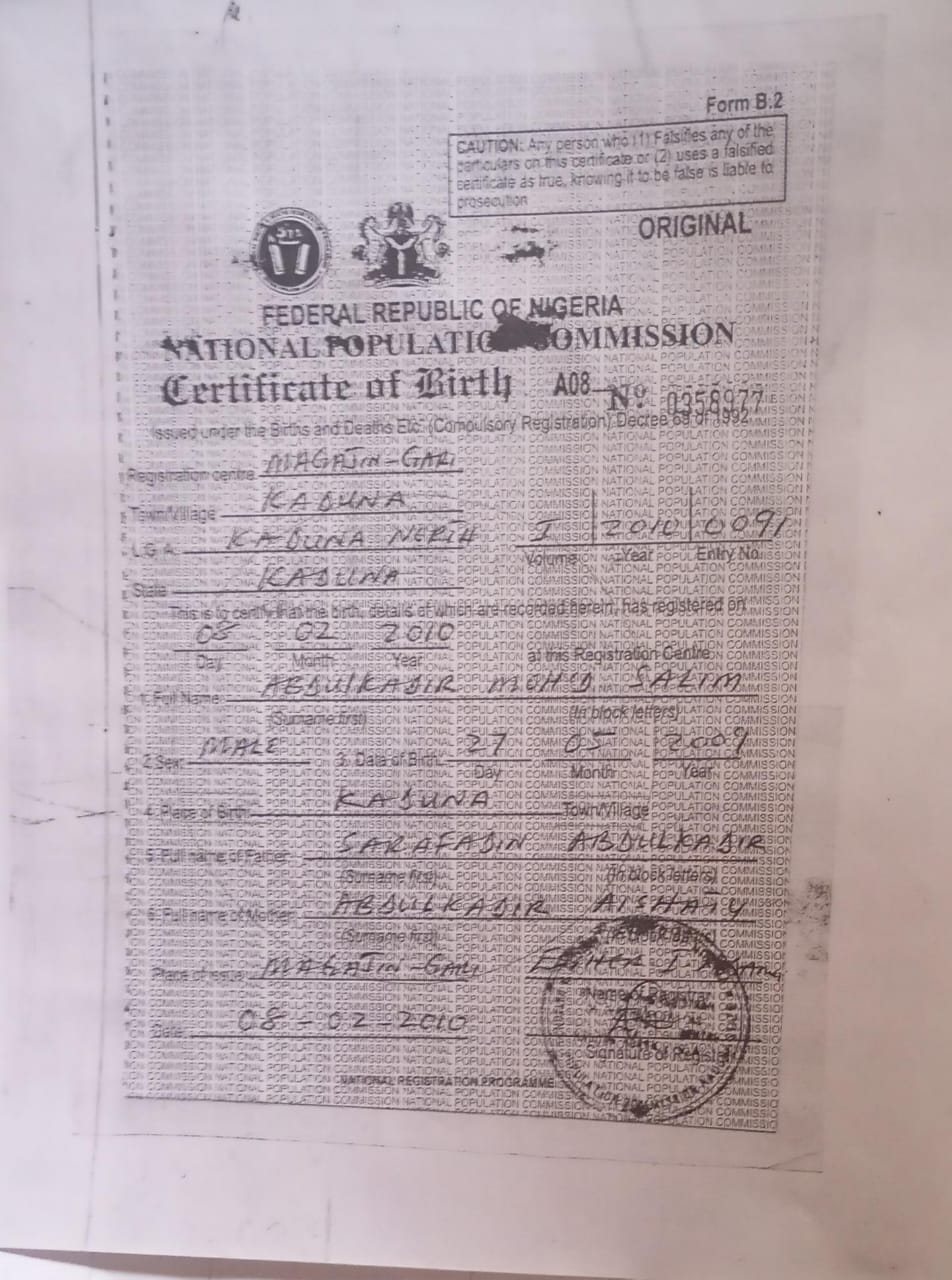 Form B.2
CAUTION: Any person who (1) Falsifies any of the
particulars on this certificate or (2) uses a falsified
certificate as true, knowing it to be false is liable to
prosecution
ORIGINAL
FEDERAL REPUBLIC OF NIGERIA
NATIONAL POPULATION COMMISSION
Certificate of Birth A08 No 0358977
Issued under the Births and Deaths Etc. (Compulsory Registration) Decree 69 of 1992
Registration centre MAGAJIN-GARI
Town/Village KADUNA
L.G.A. KADUNA NORTH I 2010 0091
Volume Year Entry No.
State KADUNA
This is to certify that the birth, details of which are recorded herein, has registered on
08 02 2010
Day Month Year at this Registration Centre
1. Full Name ABDULKADIR MOHD SALIM
(Surname first) (In block letters)
2. Sex MALE 3. Date of Birth 27 05 2009
Day Month Year
4. Place of Birth KADUNA Town/Village
5. Full name of Father SARAFADIN ABDULKADIR
(Surname first) (In block letters)
6. Full name of Mother ABDULKADIR AISHATU
(Surname first)
Place of issue MAGAJIN-GARI
Name of Registrar
Date 08-02-2010
Signature of Registrar
NATIONAL REGISTRATION PROGRAMME